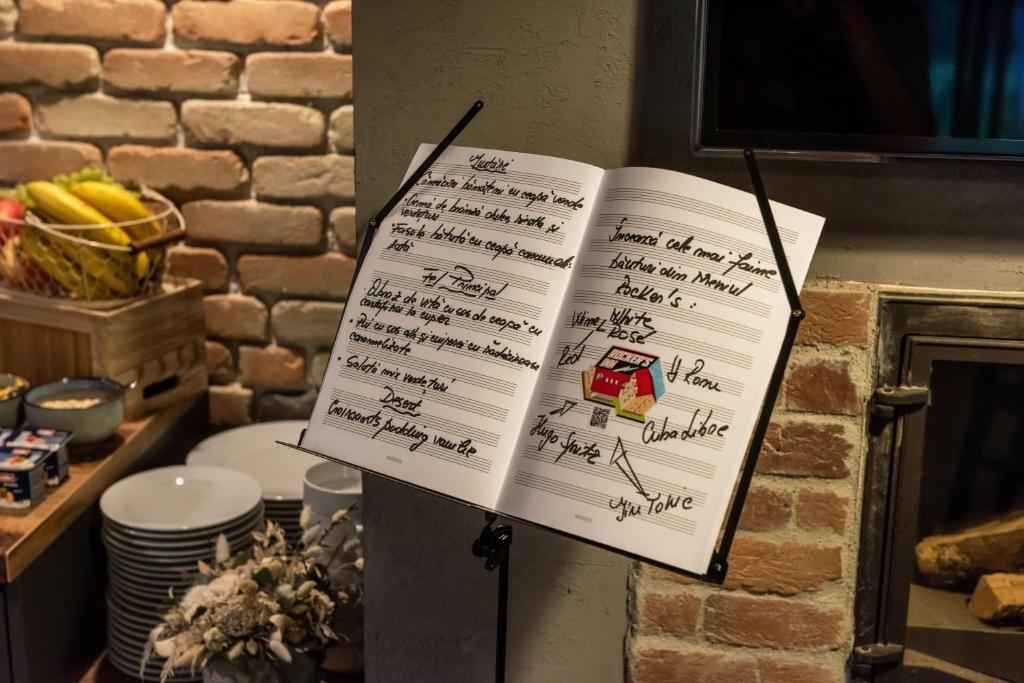 Gustări
cu ceapă verde
Cremă de brânză dulce, și
verdețuri
Fasole bătută cu ceapă
Fel Principal
de vită cu sos de ceapă cu
cartofi noi la cuptor
Pui cu sos alb și ciuperci cu
Salată mix verdețuri
Desert
Croissants pudding vanilie
Încearcă cele mai faine
băuturi din Meniul
Rocker's:
Wine White
Rose
Red
ROCKER'S
INN
4 Rom
Hugo Spritz
Cuba Libre
Gin Tonic